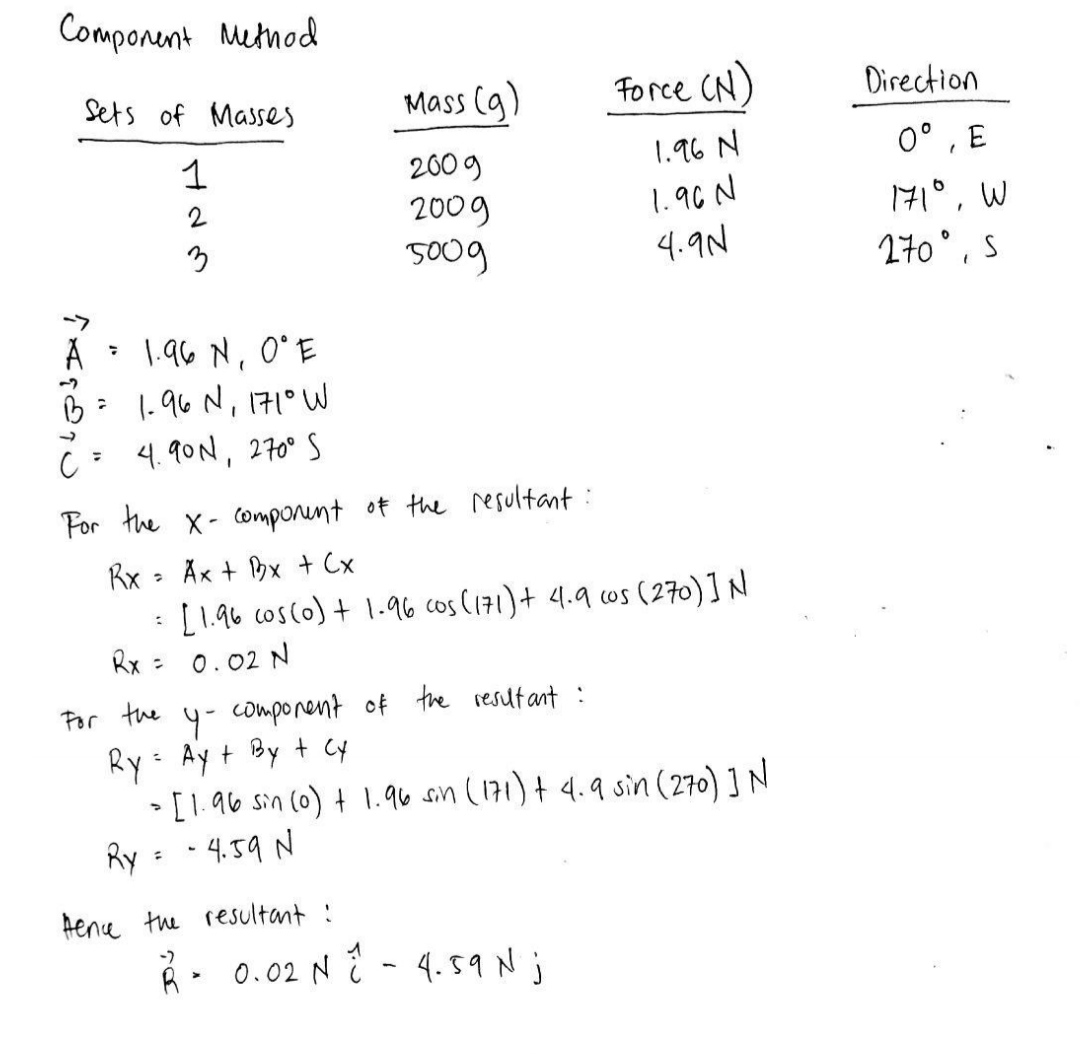 Component Method
Sets of Masses Mass (g) Force (N) Direction
1 200g 1.96 N 0°, E
2 200g 1.96 N 171°, W
3 500g 4.9N 270°, S
A⃗ = 1.96 N, 0° E
B⃗ = 1.96 N, 171° W
C⃗ = 4.90N, 270° S
For the x- component of the resultant :
Rx = Ax + Bx + Cx
= [1.96 cos(0) + 1.96 cos(171) + 4.9 cos (270)] N
Rx = 0.02 N
For the y- component of the resultant :
Ry = Ay + By + Cy
= [1.96 sin (0) + 1.96 sin (171) + 4.9 sin (270) ] N
Ry = - 4.59 N
Hence the resultant :
R⃗ = 0.02 N î - 4.59 N j